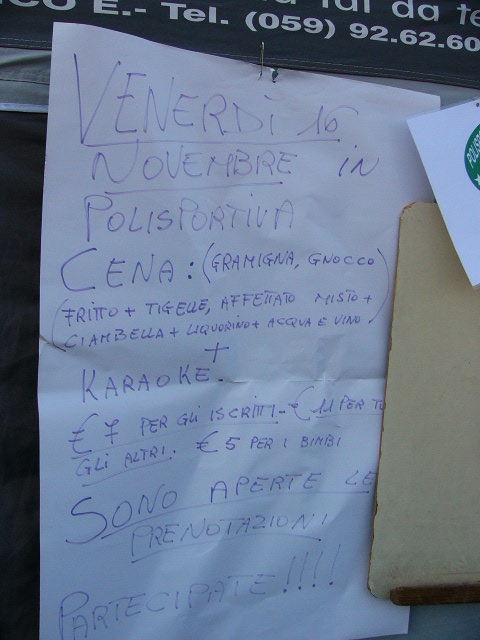 CO E.- Tel. (059) 92.62.60
da te
VENERDÌ 16
NOVEMBRE IN
POLISPORTIVA
CENA: (GRAMIGNA, GNOCCO
FRITTO + TIGELLE, AFFETTATO MISTO +
CIAMBELLA + LIQUORINO + ACQUA E VINO)
+
KARAOKE.
€ 7 PER GLI ISCRITTI - € 11 PER TU
GLI ALTRI. € 5 PER I BIMBI
SONO APERTE LE
PRENOTAZIONI
PARTECIPATE!!!!